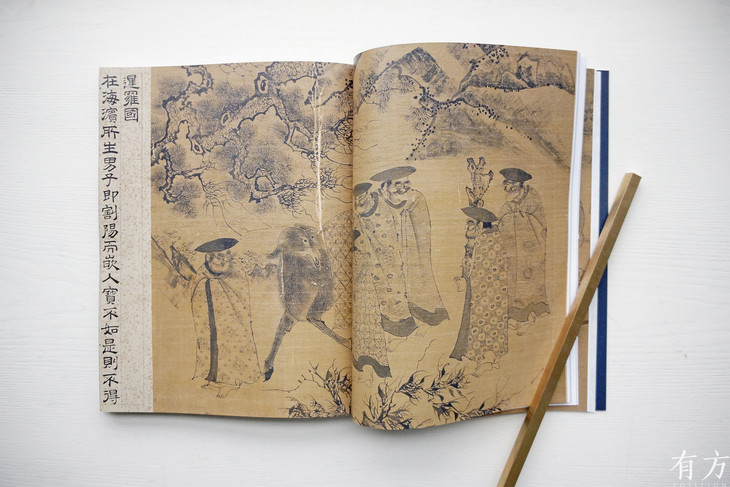 暹羅國
在海濱所生男子即割陽而嵌人寶不如是則不得
有方
POSITION